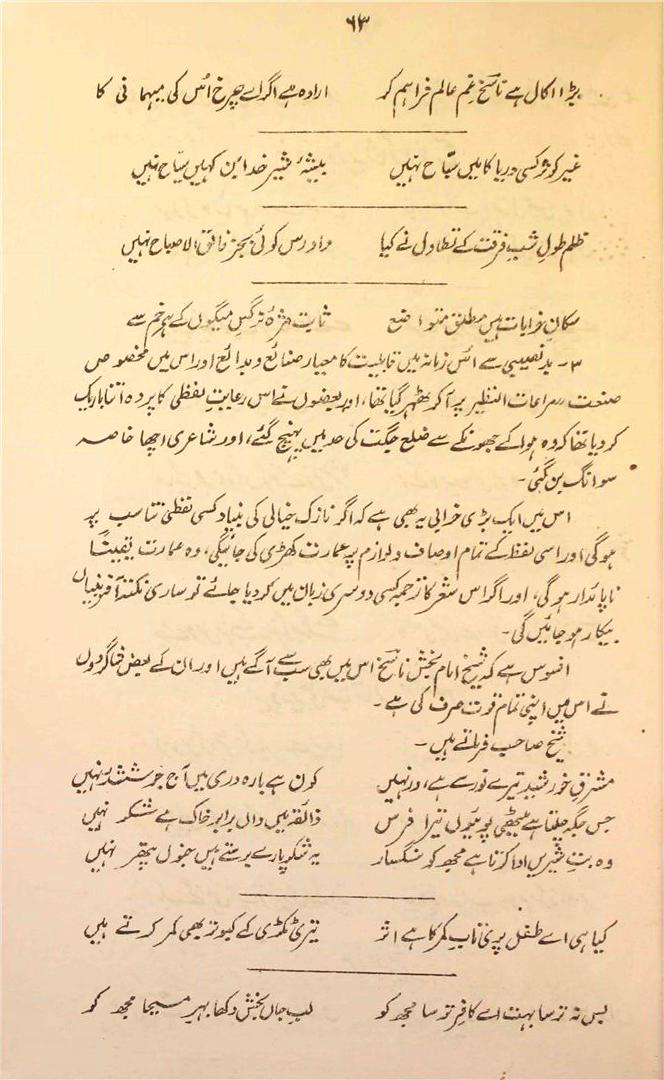 ۶۳
بڑا اکال ہے ناسخ غم عالم فراہم کر ارادہ ہے اگر اے چرخ اُس کی میہمانی کا
غیر کوثر کسی دریا کا میں سیّاح نہیں بیشۂ شیر خدا بن کہیں سیّاح نہیں
ظلم طولِ شبِ فرقت کے تطاول نے کیا دادرس کوئی بجز فالق الاصباح نہیں
سکانِ خرابات ہیں مطلق متواضع ثابت مژۂ نرگس میگوں کے ہر خم سے
۳- بدنصیبی سے اس زمانہ میں قابلیت کا معیار صنائع و بدائع اور اس میں مخصوص
صنعت مراعات النظیر پر آ کر ٹھہر گیا تھا، اور بعضوں نے اس رعایتِ لفظی کا پردہ اتنا باریک
کر دیا تھا کہ وہ ہوا کے جھونکے سے ضلع جگت کی حد میں پہنچ گئے، اور شاعری اچھا خاصہ
سوانگ بن گئی۔
اس میں ایک بڑی خرابی یہ بھی ہے کہ اگر نازک خیالی کی بنیاد کسی لفظی تناسب پر
ہوگی اور اسی لفظ کے تمام اوصاف و لوازم پر عمارت کھڑی کی جائیگی، وہ عمارت یقیناً
ناپائدار ہوگی، اور اگر اس شعر کا ترجمہ کسی دوسری زبان میں کر دیا جائے تو ساری نکتہ آفرینیاں
بیکار ہو جائیں گی۔
افسوس ہے کہ شیخ امام بخش ناسخ اس میں بھی سب سے آگے ہیں اور ان کے بعض شاگردوں
نے اس میں اپنی تمام قوت صرف کی ہے۔
شیخ صاحب فرماتے ہیں۔
مشرقِ خورشید تیرے نور سے ہے، در نہیں کون ہے بارہ دری میں آج جو ششدر نہیں
جس جگہ چلتا ہے میٹھی پوئیوں تیرا فرس ذائقہ میں واں برابر خاک کے شکر نہیں
وہ بتِ شیریں ادا کرتا ہے مجھ کو سنگسار یہ شکر پارے برستے ہیں جنوں پتھر نہیں
کیا ہی اے طفل پری تابِ کمر کا ہے اثر تیری ٹکڑی کے کبوتر بھی کمر کرتے ہیں
بس نہ ترسا بہت اے کافرِ ترسا مجھ کو لبِ جاں بخش دکھا بہرِ مسیحا مجھ کو